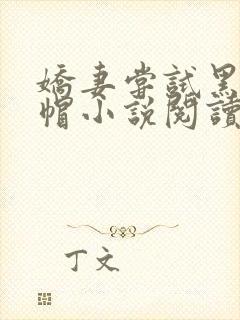 嬌妻嘗試黑
帽小説閱讀
丁文